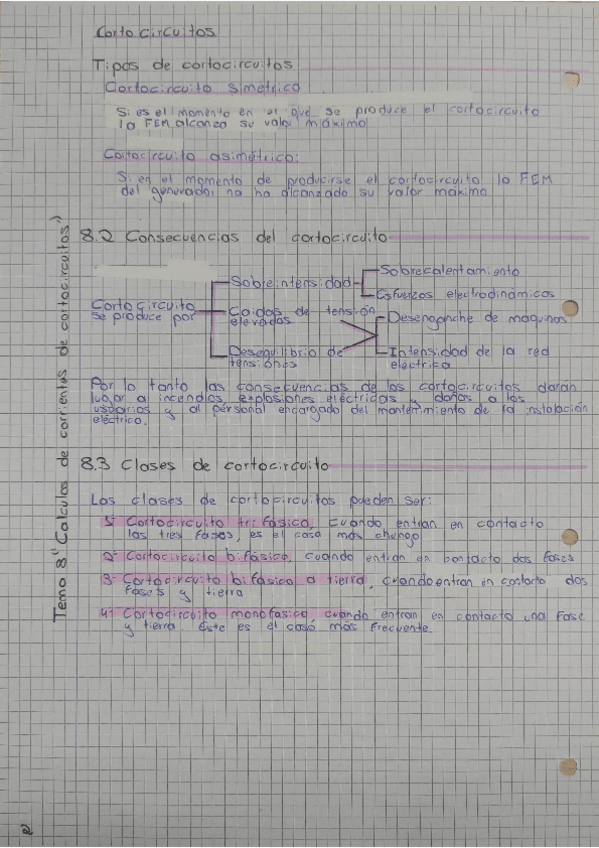 Corto circuitos
Tipos de cortocircuitos
Cortocircuito simétrico
Si es el momento en el que se produce el cortocircuito
la FEM alcanza su valor máximo
Cortocircuito asimétrico:
Si en el momento de producirse el cortocircuito la FEM
del generador no ha alcanzado su valor máxima
8.2 Consecuencias del cortocircuito
Corto circuito
se produce por
Sobreintensidad
Sobrecalentamiento
Esfuerzos electrodinámicos
Caidas de tensión
elevadas
Desequilibrio de
tensiones
Desenganche de maquinas
Intensidad de la red
electrica
Por lo tanto las consecuencias de los cortocircuitos darán
lugar a incendios, explosiones eléctricas y daños a los
usuarios y al personal encargado del mantenimiento de la instalación
eléctrico.
8.3 Clases de cortocircuito
Las clases de cortocircuitos pueden ser:
1- Cortocircuito trifásico, cuando entran en contacto
las tres fases, es el caso más chungo
2- Cortocircuito bifásico, cuando entran en contacto dos fases
3- Cortocircuito bifásico a tierra, cuando entran en contacto dos
fases y tierra
4- Cortocircuito monofasico cuando entran en contacto una Fase
y tierra. Este es el caso más frecuente.
Tema 8 "Calculos de corrientes de cortocircuitos"